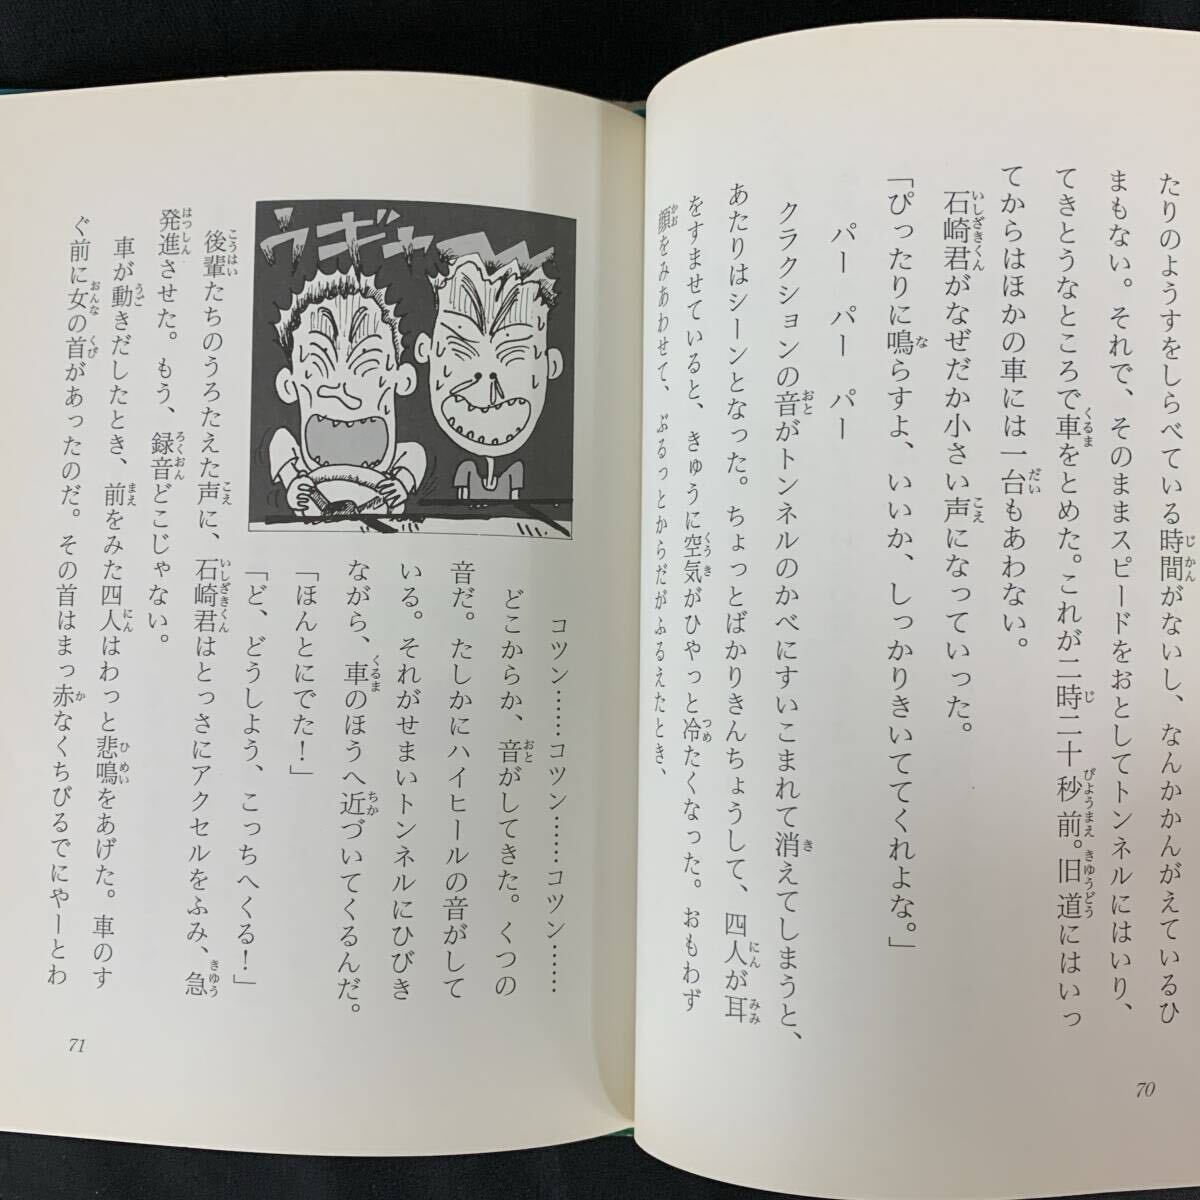 たりのようすをしらべている時間がないし、なんかかんがえているひ
まもない。それで、そのままスピードをおとしてトンネルにはいり、
てきとうなところで車をとめた。これが二時二十秒前。旧道にはいっ
てからはほかの車には一台もあわない。
石崎君がなぜだか小さい声になっていった。
「ぴったりに鳴らすよ、いいか、しっかりきいててくれよな。」
パー　パー　パー
クラクションの音がトンネルのかべにすいこまれて消えてしまうと、
あたりはシーンとなった。ちょっとばかりきんちょうして、四人が耳
をすませていると、きゅうに空気がひやっと冷たくなった。おもわず
顔をみあわせて、ぶるっとからだがふるえたとき、
70
ウギャー
コツン……コツン……コツン……
どこからか、音がしてきた。くつの
音だ。たしかにハイヒールの音がして
いる。それがせまいトンネルにひびき
ながら、車のほうへ近づいてくるんだ。
「ほんとにでた！」
「ど、どうしよう、こっちへくる！」
後輩たちのうろたえた声に、石崎君はとっさにアクセルをふみ、急
発進させた。もう、録音どこじゃない。
車が動きだしたとき、前をみた四人はわっと悲鳴をあげた。車のす
ぐ前に女の首があったのだ。その首はまっ赤なくちびるでにやーとわ
71